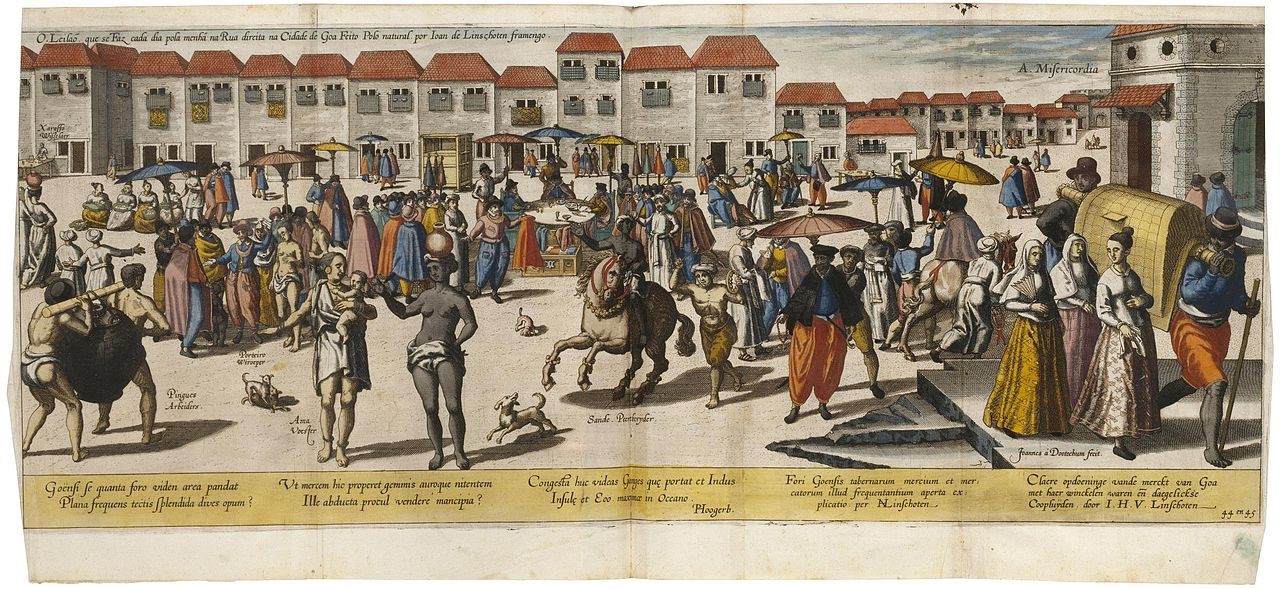 O. Leilaõ que se Faz cada dia pola menhã na Rua direita na Cidade de Goa Feito Polo natural por Ioan de Linschoten framengo.
A. Misericordia
Xaraffo
Wisselaer
Porteiro
Wtroeper
Pingues
Arbeiders.
Ama
Voester
Sande.
Joannes à Doetechum fecit.
Goënsi se quanta foro viden area pandat
Plana frequens tectis splendida dives opum?
Vt mercem hic properet gemmis auroque nitentem
Ille abducta procul vendere mancipia?
Congesta huc videas Ganges quę portat et Indus
Insulę et Eoo maxmæ in Oceano.
PHoogerb.
Fori Goensis tabernarum mercium et mer,
catorum illud frequentantium aperta ex,
plicatio per NLinschoten
Claere opdoeninge vande merckt van Goa
met haer winckelen waren eñ daegelickse
Coopluyden door I.H.V. Linschoten
44 en 45